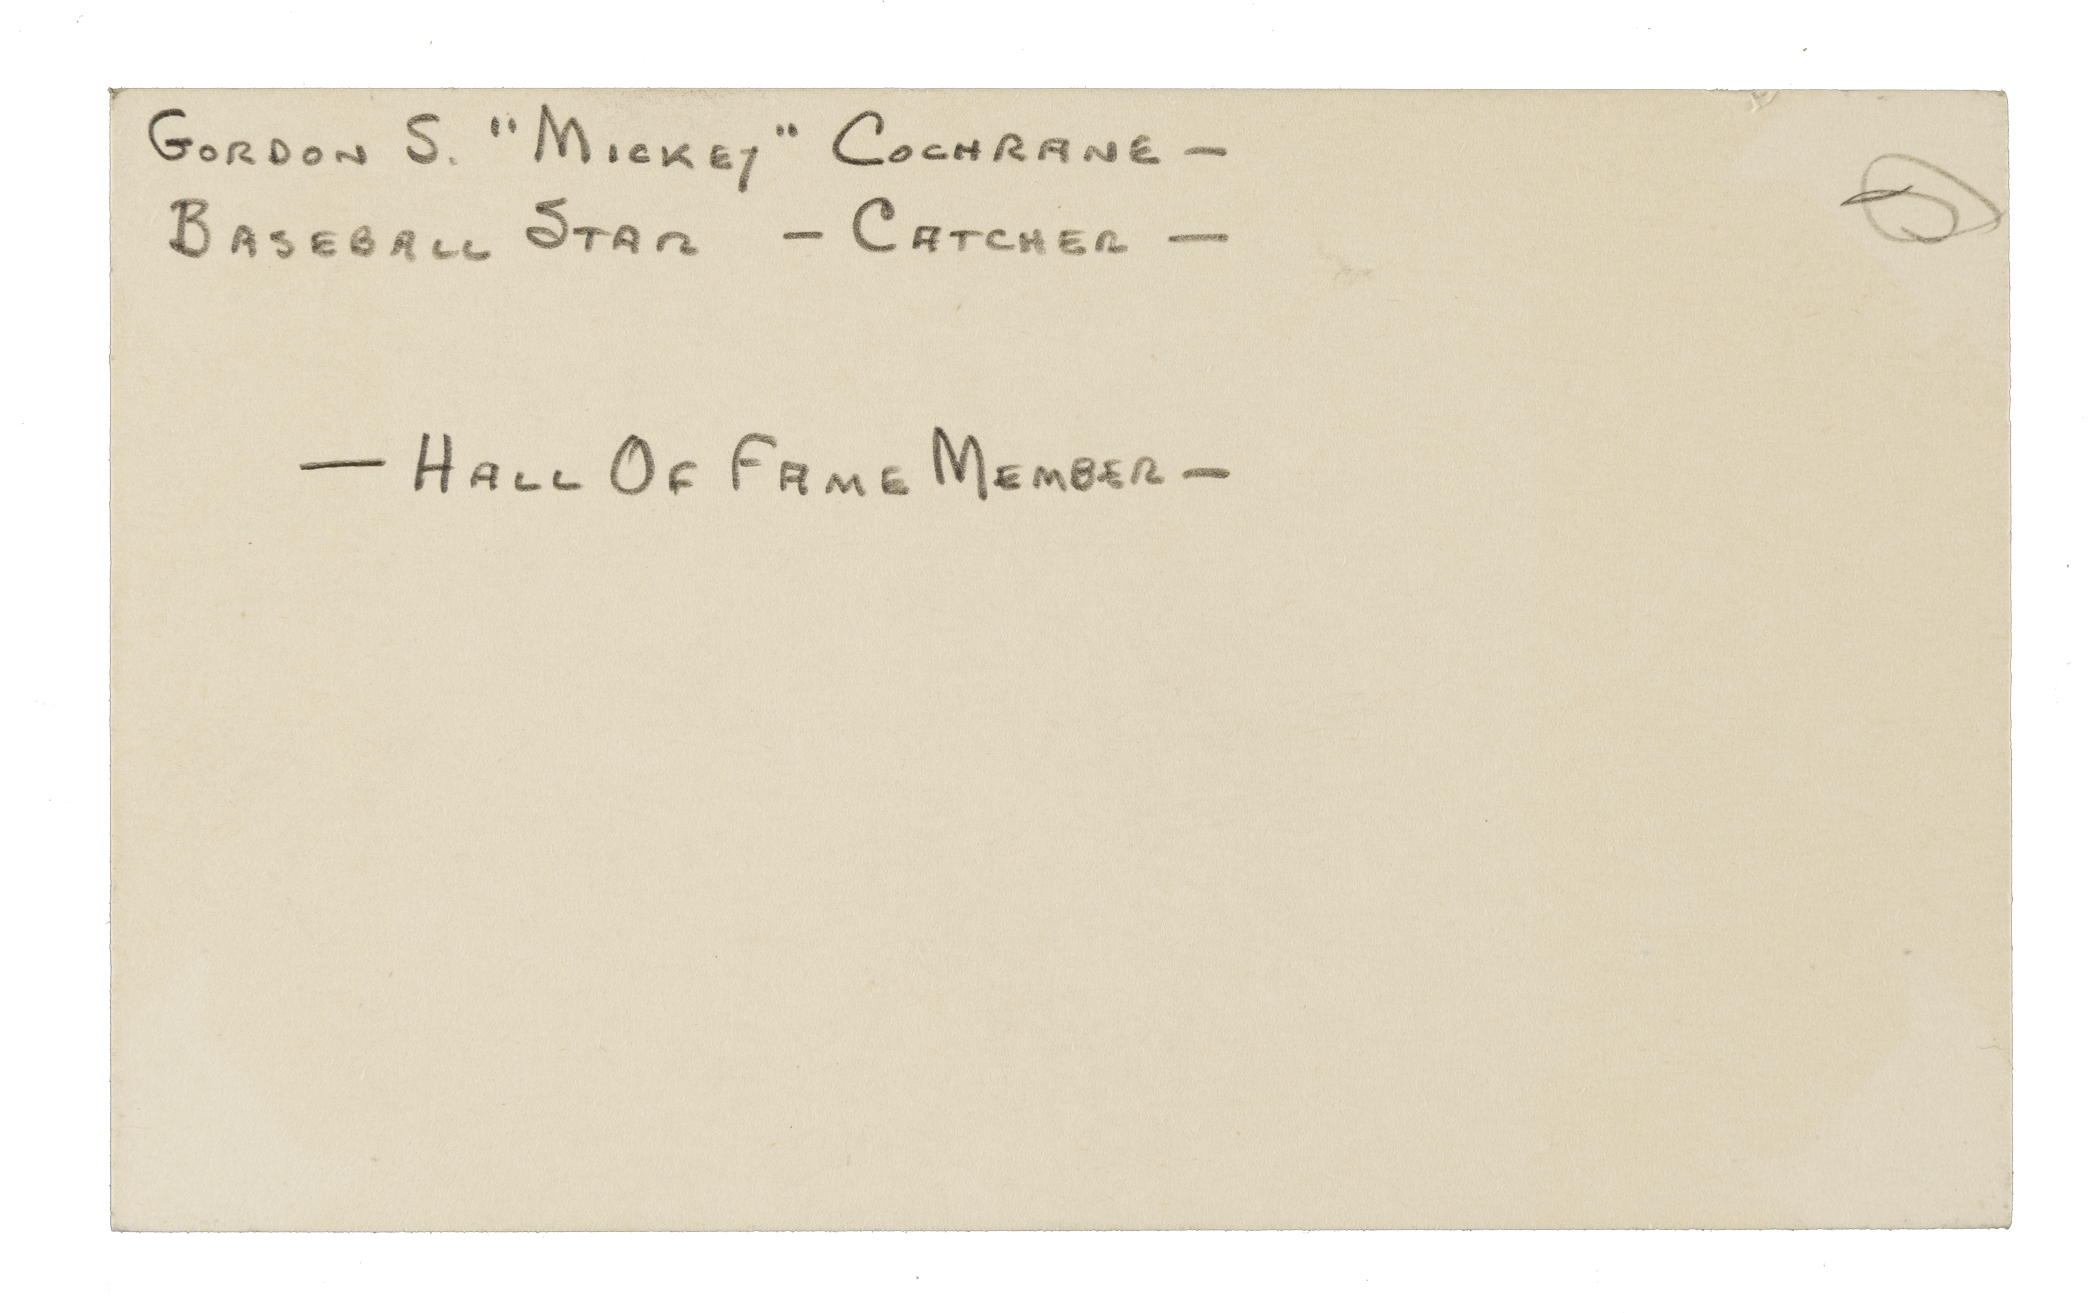 GORDON S. "MICKEY" COCHRANE —
BASEBALL STAR — CATCHER —
— HALL OF FAME MEMBER —